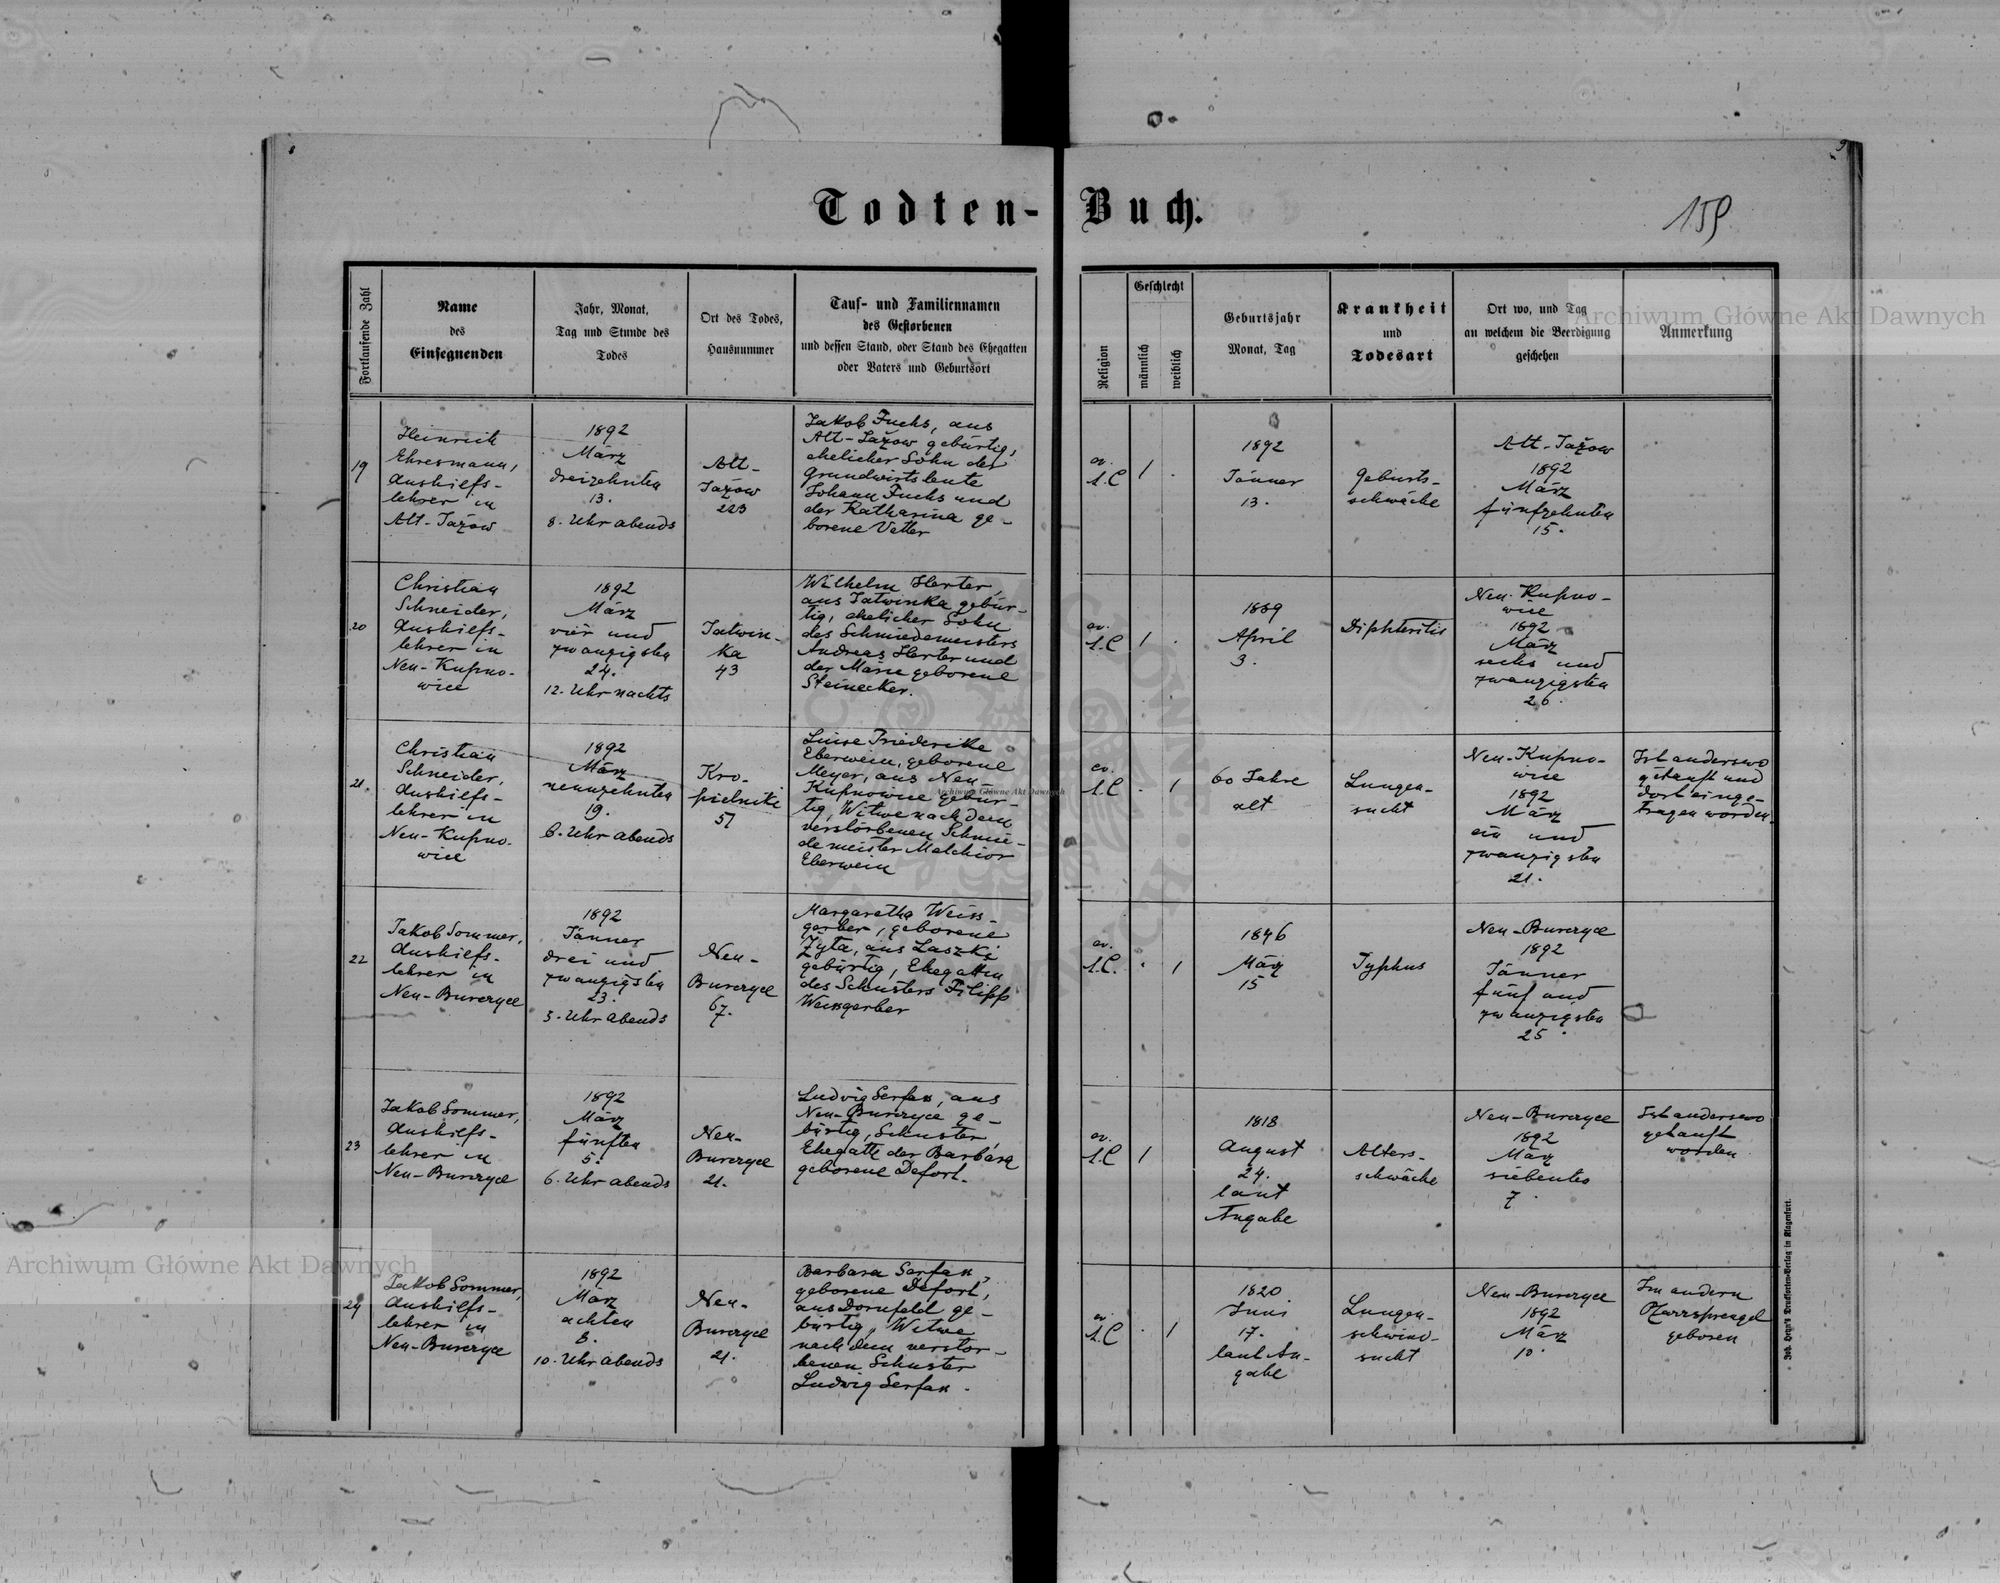 8
9
Todten-Buch.
159
Fortlaufende Zahl
Name
des
Einsegnenden
Jahr, Monat,
Tag und Stunde des
Todes
Ort des Todes,
Hausnummer
Tauf- und Familiennamen
des Gestorbenen
und dessen Stand, oder Stand des Ehegatten
oder Vaters und Geburtsort
Religion
Geschlecht
männlich
weiblich
Geburtsjahr
Monat, Tag
Krankheit
und
Todesart
Ort wo, und Tag
an welchem die Beerdigung
geschehen
Anmerkung
19
Heinrich
Ehresmann,
Aushilfs-
lehrer in
Alt-Jażow
1892
März
dreizehnten
13.
8. Uhr abends
Alt-
Jażow
223
Jakob Fuchs, aus
Alt-Jażow gebürtig,
ehelicher Sohn der
Grundwirtsleute
Johann Fuchs und
der Katharina ge-
borene Vetter
ev.
A.C
1
.
1892
Jänner
13.
Geburts-
schwäche
Alt-Jażow
1892
März
fünfzehnten
15.
20
Christian
Schneider,
Aushilfs-
lehrer in
Neu-Kupno-
wice
1892
März
vier und
zwanzigsten
24.
12. Uhr nachts
Jatwin-
ka
43
Wilhelm Herter,
aus Jatwinka gebür-
tig, ehelicher Sohn
des Schmiedemeisters
Andreas Herter und
der Marie geborene
Steinecker.
ev.
A.C
1
.
1889
April
3.
Diphteritis
Neu-Kupno-
wice
1892
März
sechs und
zwanzigsten
26.
21.
Christian
Schneider,
Aushilfs-
lehrer in
Neu-Kupno-
wice
1892
März
neunzehnten
19.
6. Uhr abends
Kro-
pielniki
57
Luise Friederike
Eberwein, geborene
Meyer, aus Neu-
Kupnowice gebür-
tig, Witwe nach dem
verstorbenen Schmie-
demeister Melchior
Eberwein
ev.
A.C
.
1
60 Jahre
alt
Lungen-
sucht
Neu-Kupno-
wice
1892
März
ein und
zwanzigsten
21.
Ist anderswo
getauft und
dort einge-
tragen worden.
22
Jakob Sommer,
Aushilfs-
lehrer in
Neu-Burczyce
1892
Jänner
drei und
zwanzigsten
23.
5. Uhr abends
Neu-
Burczyce
67.
Margaretha Weiss-
gerber, geborene
Zyta, aus Laszki
gebürtig, Ehegattin
des Schusters Filipp
Weissgerber
ev.
A.C.
.
1
1846
März
15
Typhus
Neu-Burczyce
1892
Jänner
fünf und
zwanzigsten
25.
23
Jakob Sommer,
Aushilfs-
lehrer in
Neu-Burczyce
1892
März
fünften
5.
6. Uhr abends
Neu-
Burczyce
21.
Ludwig Serfas, aus
Neu-Burczyce ge-
bürtig, Schuster,
Ehegatte der Barbara
geborene Defort.
ev.
A.C
1
1818
August
24.
laut
Angabe
Alters-
schwäche
Neu-Burczyce
1892
März
siebenten
7.
Ist anderswo
getauft
worden
24
Jakob Sommer,
Aushilfs-
lehrer in
Neu-Burczyce
1892
März
achten
8.
10. Uhr abends
Neu-
Burczyce
21.
Barbara Serfas,
geborene Defort,
aus Dornfeld ge-
bürtig, Witwe
nach dem verstor-
benen Schuster
Ludwig Serfas.
ev
A.C
.
1
1820
Juni
17.
laut An-
gabe
Lungen-
schwind-
sucht
Neu-Burczyce
1892
März
10.
Im andern
Pfarrsprengel
geboren
Joh. Heyn's Drucksorten-Verlag in Klagenfurt.
Archiwum Główne Akt Dawnych
Archiwum Główne Akt Dawnych
Archiwum Główne Akt Dawnych